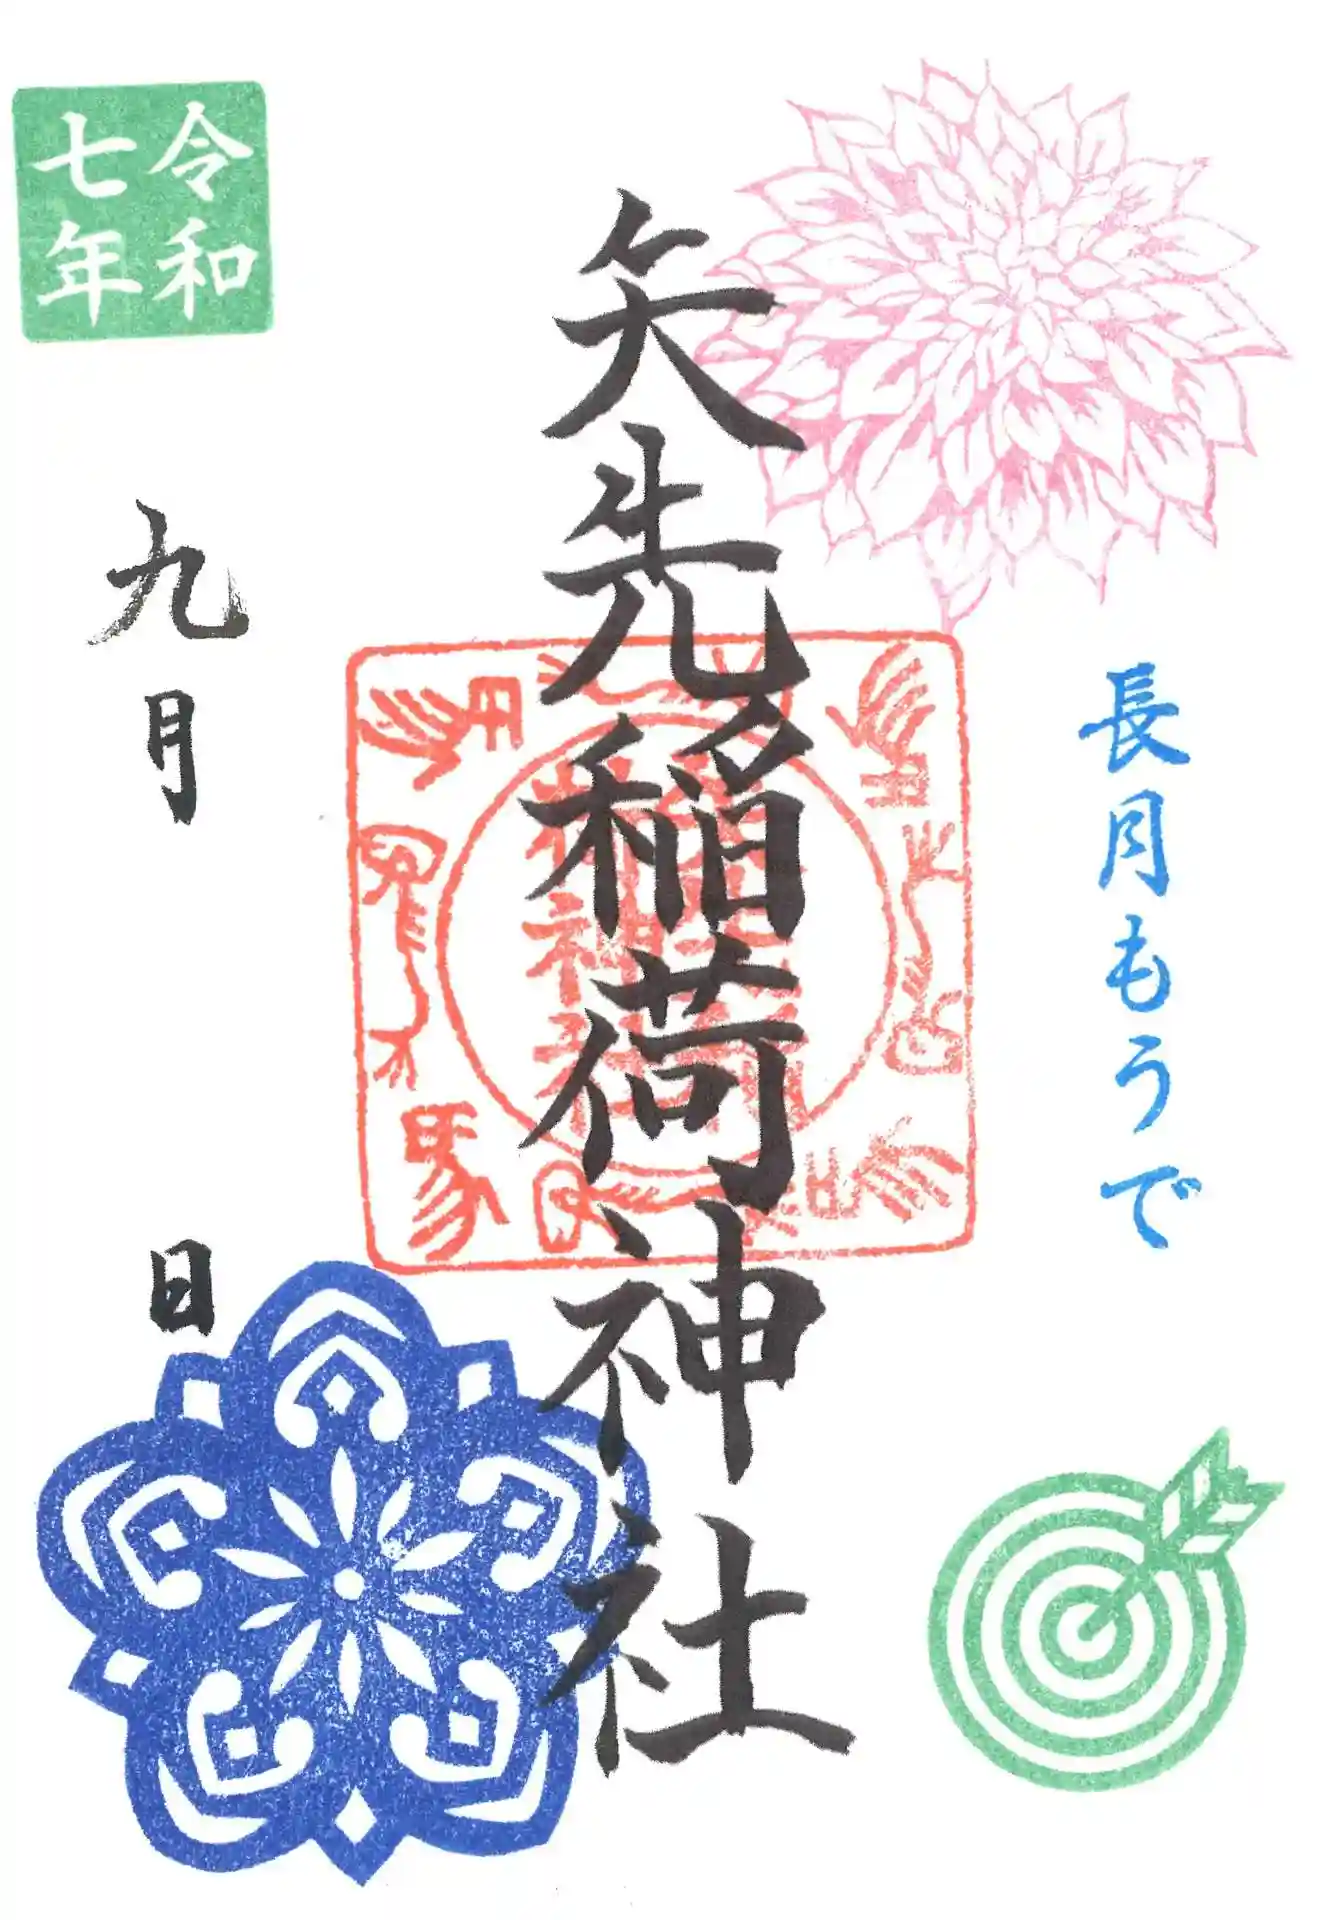 長月もうで
矢先稲荷神社
令和
七年
九月 日